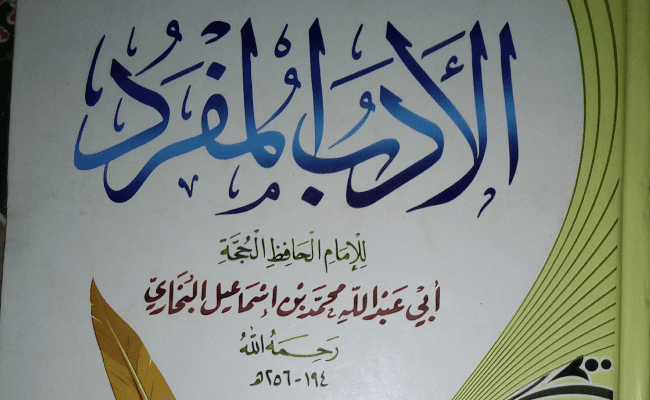 الأَدَبُ المُفْرَد
لِلإِمَامِ الحَافِظِ الحُجَّةِ
أَبِي عَبْدِ اللهِ مُحَمَّد بْنِ إِسْمَاعِيل البُخَارِيّ
رَحِمَهُ اللهُ
١٩٤-٢٥٦هـ